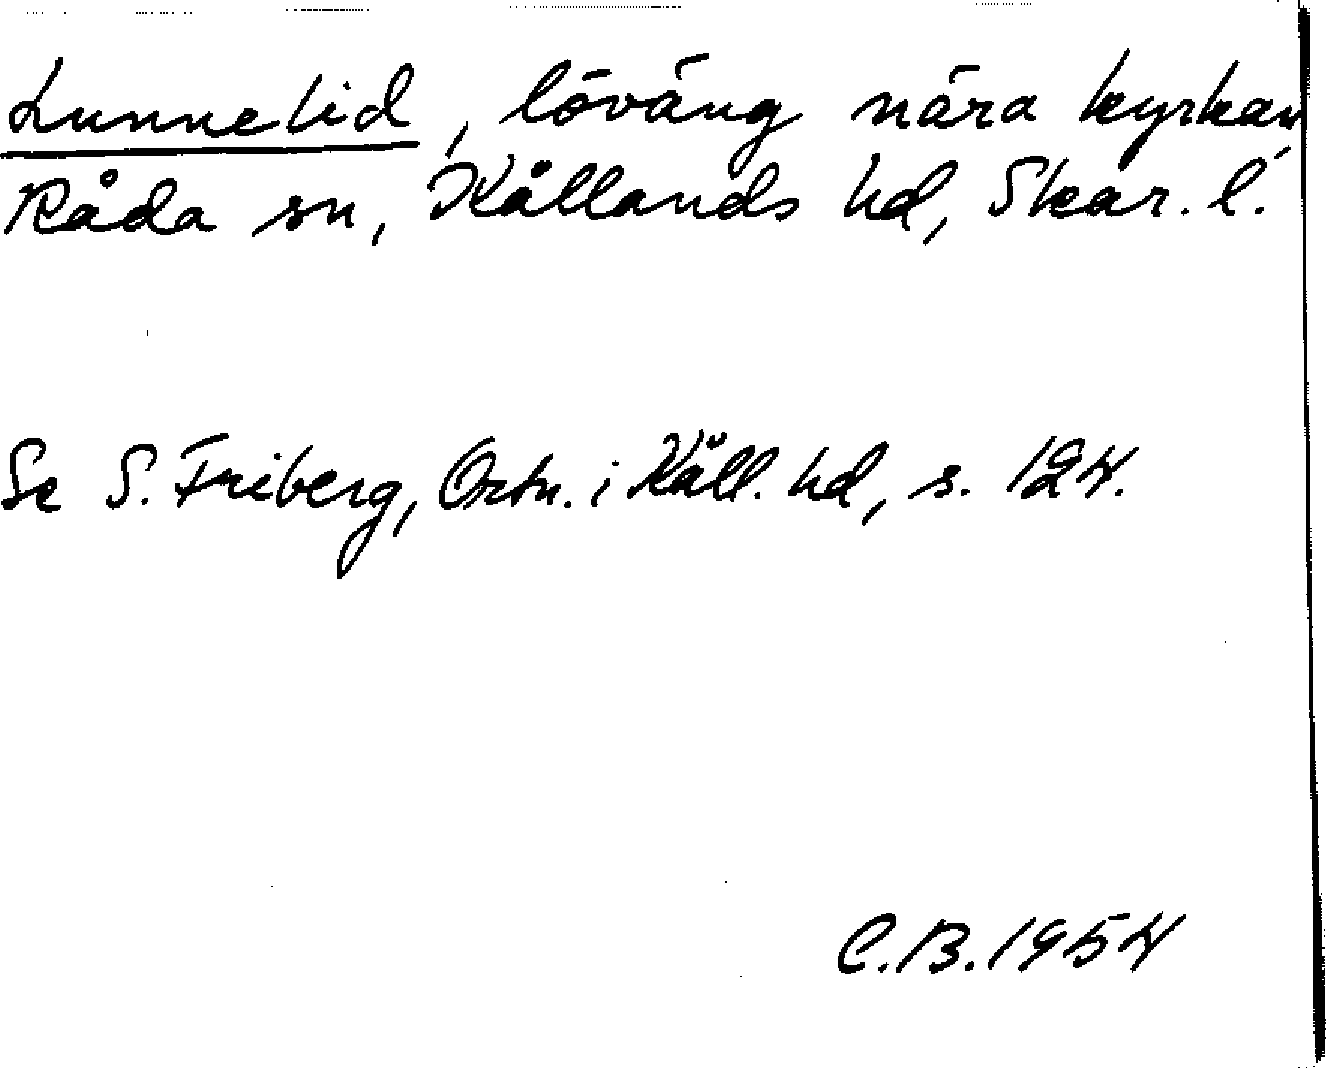 Lunnelid, löväng nära kyrkan
Råda sn, Kållands hd, Skar. l.
Se S. Friberg, Ortn. i Kåll. hd, s. 124.
C.B. 1954